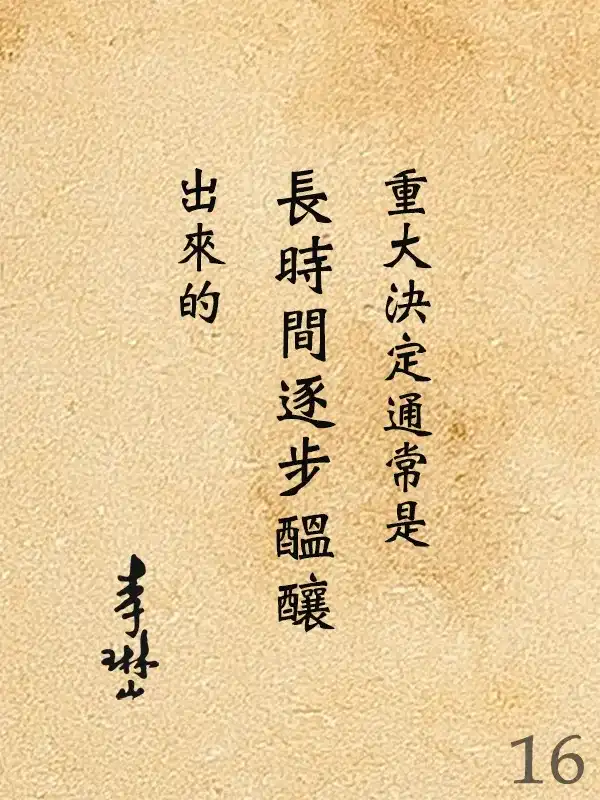 重大決定通常是
長時間逐步醞釀
出來的
李琳山
16